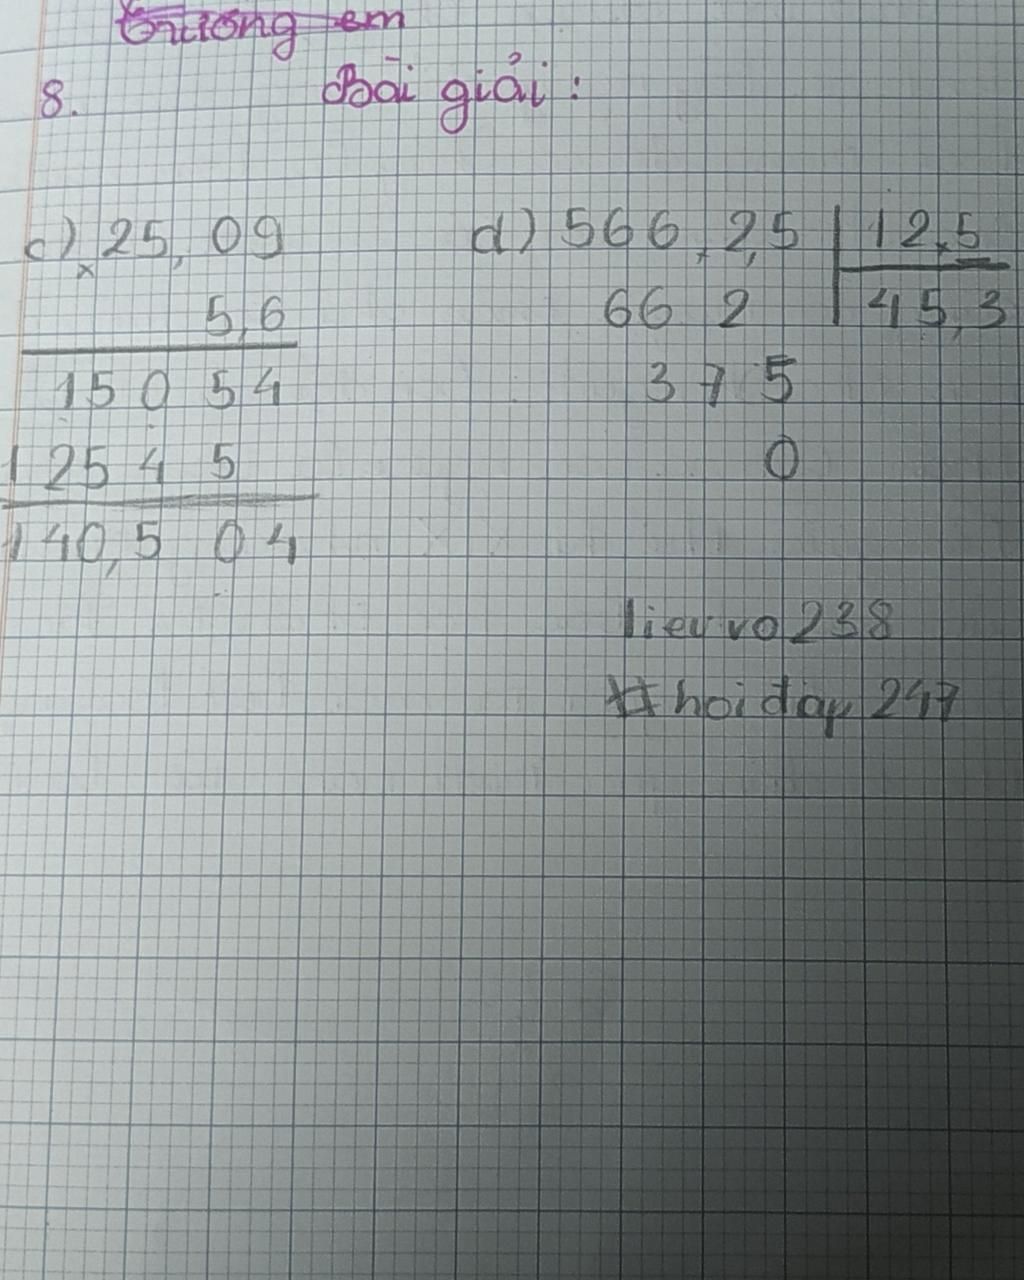 Trường em
8. Bài giải:
c) 25,09
×
5,6
15054
12545
140,504
d) 566,2,5 | 12,5
662 | 45,3
375
0
lievvo238
#hoidap247